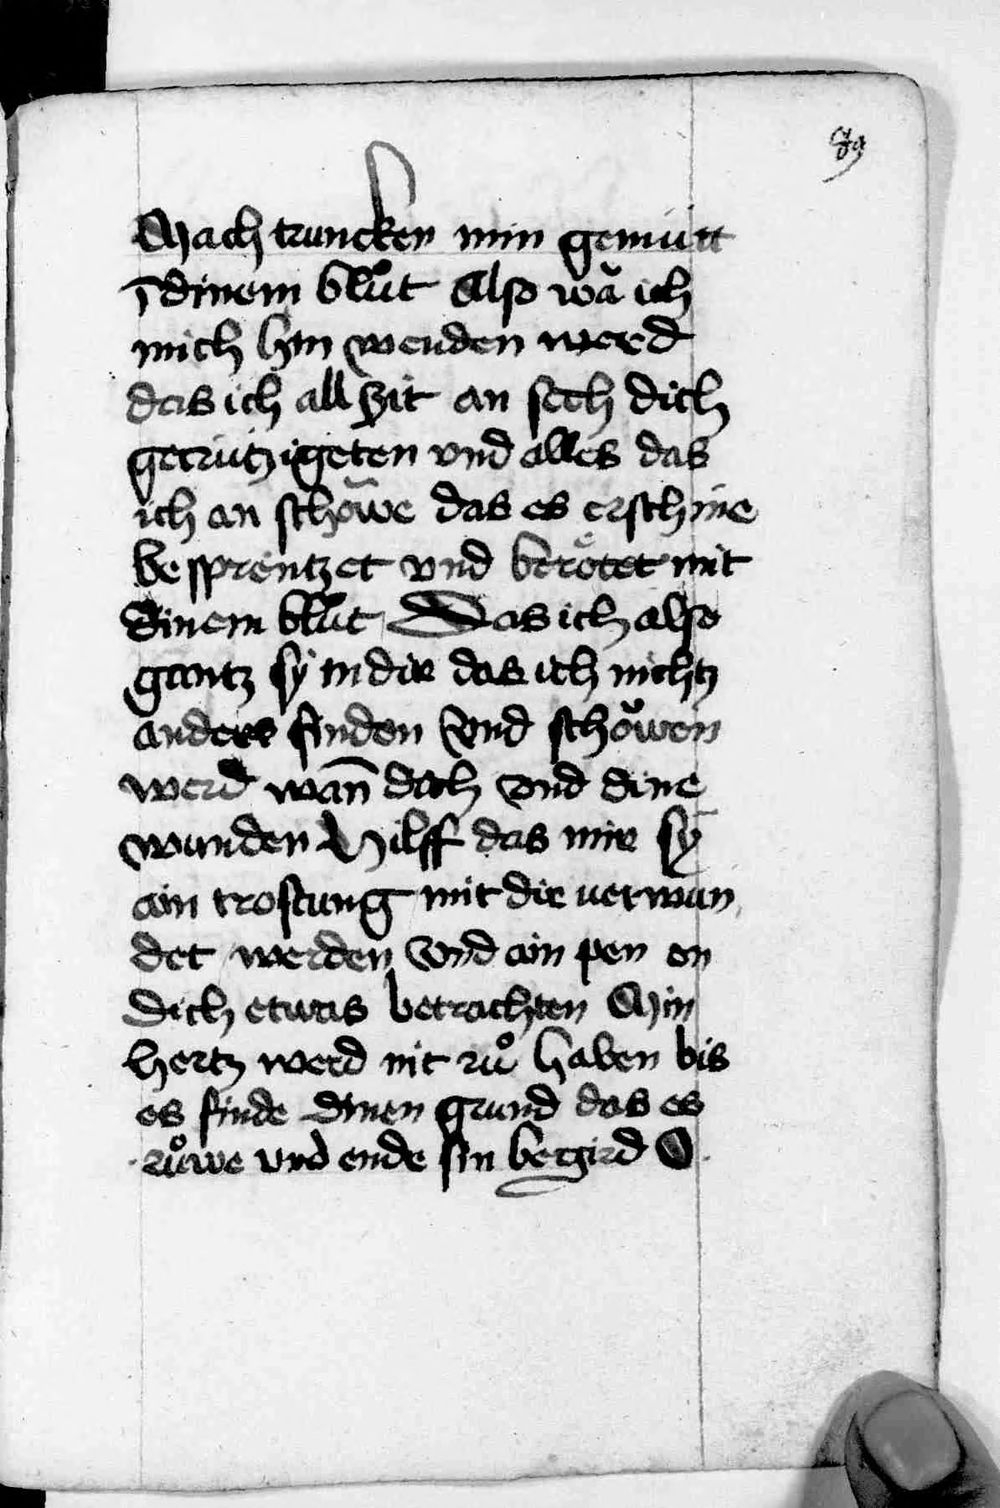 89
Mach truncken min gemütt
ī dinem blůt Also wā ich
mich hin wenden werd
das ich all zit an sech dich
gecrützigeten vnd alles das
ich an schöwe das es erschine
besprentzet vnd berötet mit
dinem blůt Das ich also
gantz sÿ in dir das ich nichtz
anders finden Vnd schöwen
werd wan̄ dich vnd dine
wunden Hilff das mir sÿ
ain trostung mit dir verwun
det werden Vnd ain pen on
dich etwas betrachten Min
hertz werd nit rů haben bis
es finde dinen grund das es
růwe vnd ende sin begird O